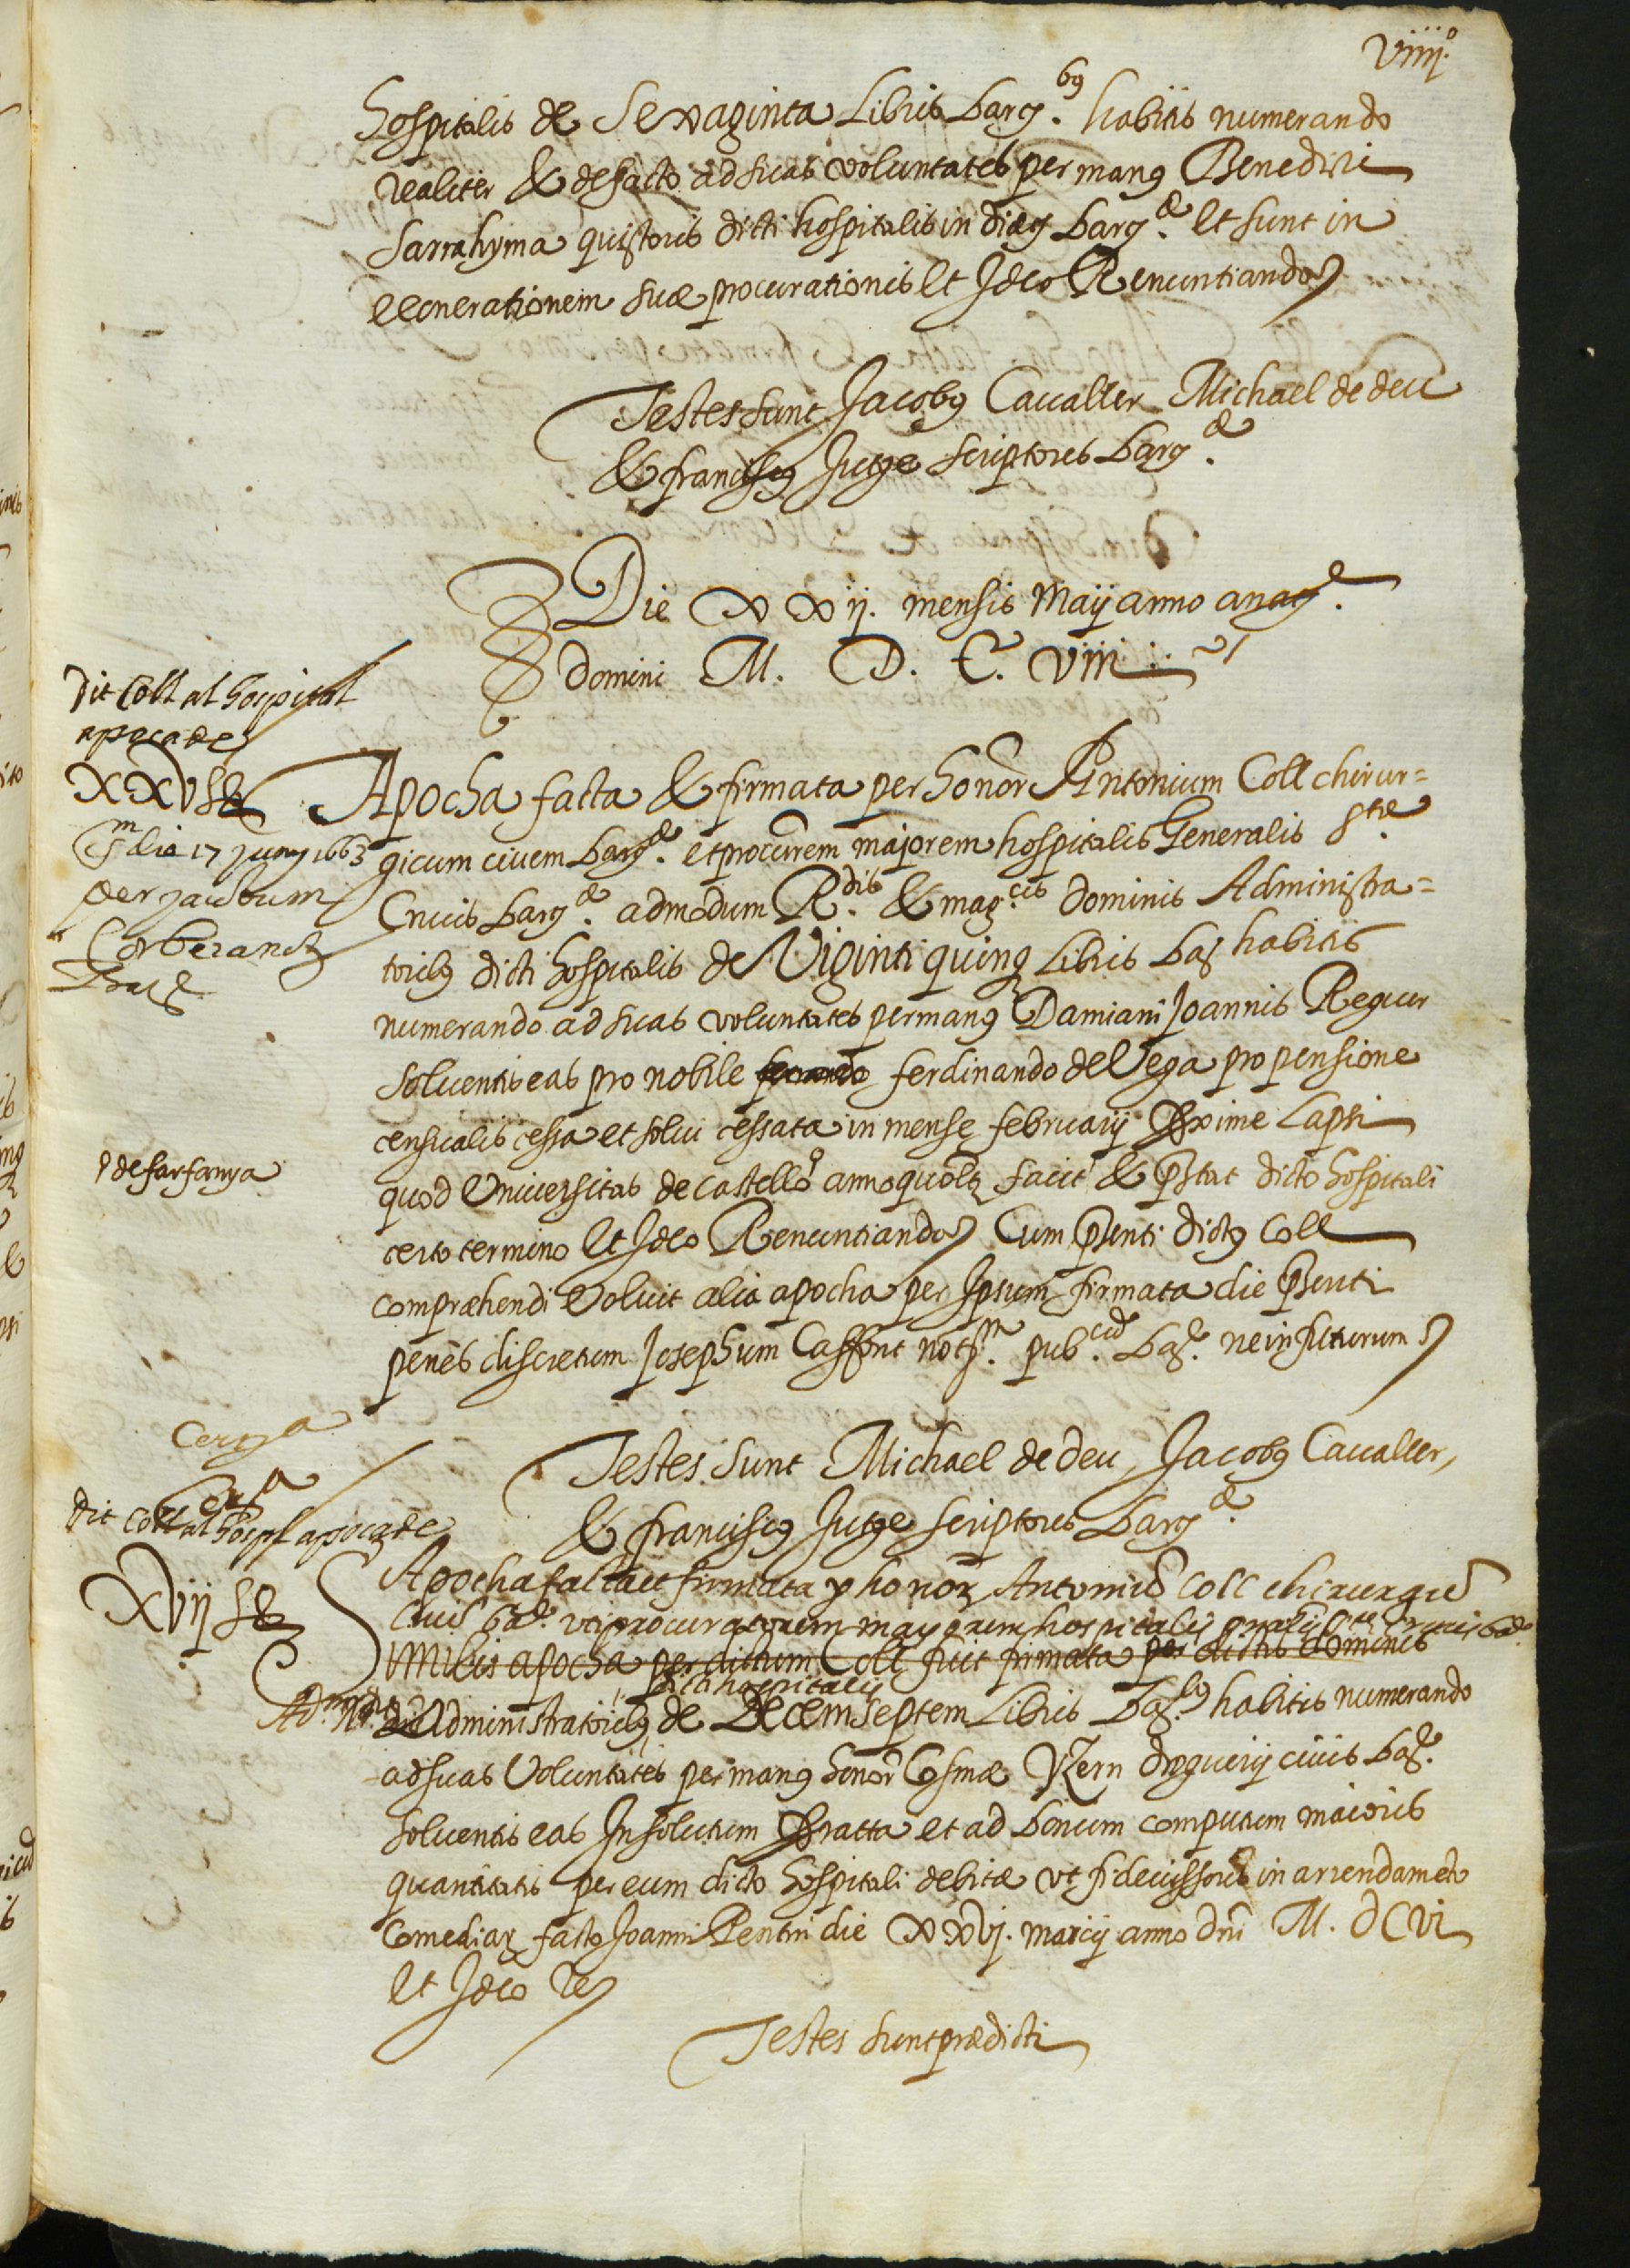 Viiij.º
hospitalis de Sexaginta Libris barçᵇ⁹. habitis numerando
realiter & defacto ad suas voluntates per manꝯ Benedicti
Sarrahyma quistoris dicti hospitalis in diaç barçᵉ. Et sunt in
exonerationem suæ procurationis Et Ideo Renuntiando
Testes sunt Jacobꝯ Cavaller Michael de deu
& franciscꝯ Jutge scriptores barçᵉ.
Die XXij. mensis Maij anno a natᵉ.
Domini M. D. C. Viiij
Dit Coll al hospital
apoca de
XXV ll
Apocha facta & firmata per honor Antonium Coll chirur=
Csᵐ die 17 juny 1663
gicum civem barçᵉ. et procurem majorem hospitalis Generalis Stæ
per jacobum
Crucis barçᵉ. admodum Rᵈⁱˢ. & mag.ᶜⁱˢ Dominis Administra=
Corberand
toribꝯ dicti hospitalis de Viginti quinq Libris baȝ habitis
numerando ad suas voluntates per manꝯ Damiani Joannis Reguer
solventis eas pro nobile ferdinando de Vega pro pensione
censualis cessa et solui cessata in mense februarij proxime Lapsi
P de farfanya
quod Universitas de castelló anno quolꝫ facit & pstat dicto hospitali
certo termino Et Ideo Renuntiando Cum psenti dictꝯ Coll
compræhendi Voluit alia apocha per Ipsum firmata die psenti
penes discretum Josephum Caffont notᵐ. pub.ᶜᵘᵐ baȝ. ne in futurum
Testes sunt Michael de deu, Jacobꝯ Cavaller,
& franciscꝯ Jutge scriptores barçᵉ.
Dit Coll al hospl apoca de
XVij ll
Apocha facta et firmata p honor Antoniū Coll chirurgiū
Civē bar. uti procuratorem mayorem hospitalis gnalis Stæ Crucis bar
similis apocha per dictum Coll fuit firmata per dictis dominis
dicti hospitalis
Ad.ᵐ Rdis Administratoribꝯ de Decem septem Libris baȝᵇ⁹. habitis numerando
ad suas Voluntates per manꝯ honor Cosmæ Vern droguerij civis baȝ.
solventis eas In solutum prorratta et ad bonum computum maioris
quantitatis per eum dicto hospitali debitæ ut fideiussoris in arrendameto
Comediaꝝ facto Joanni Rentin die XXVj. marcij anno dni M. DCVi
Et Ideo Re
Testes sunt prædicti